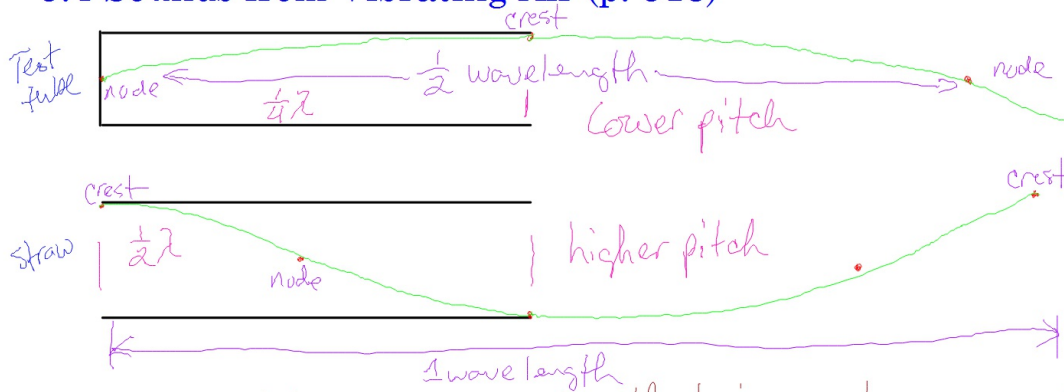 crest
Test
tube
node
1/2 wavelength
node
1/4 λ
Lower pitch
crest
crest
straw
1/2 λ
node
higher pitch
1 wavelength